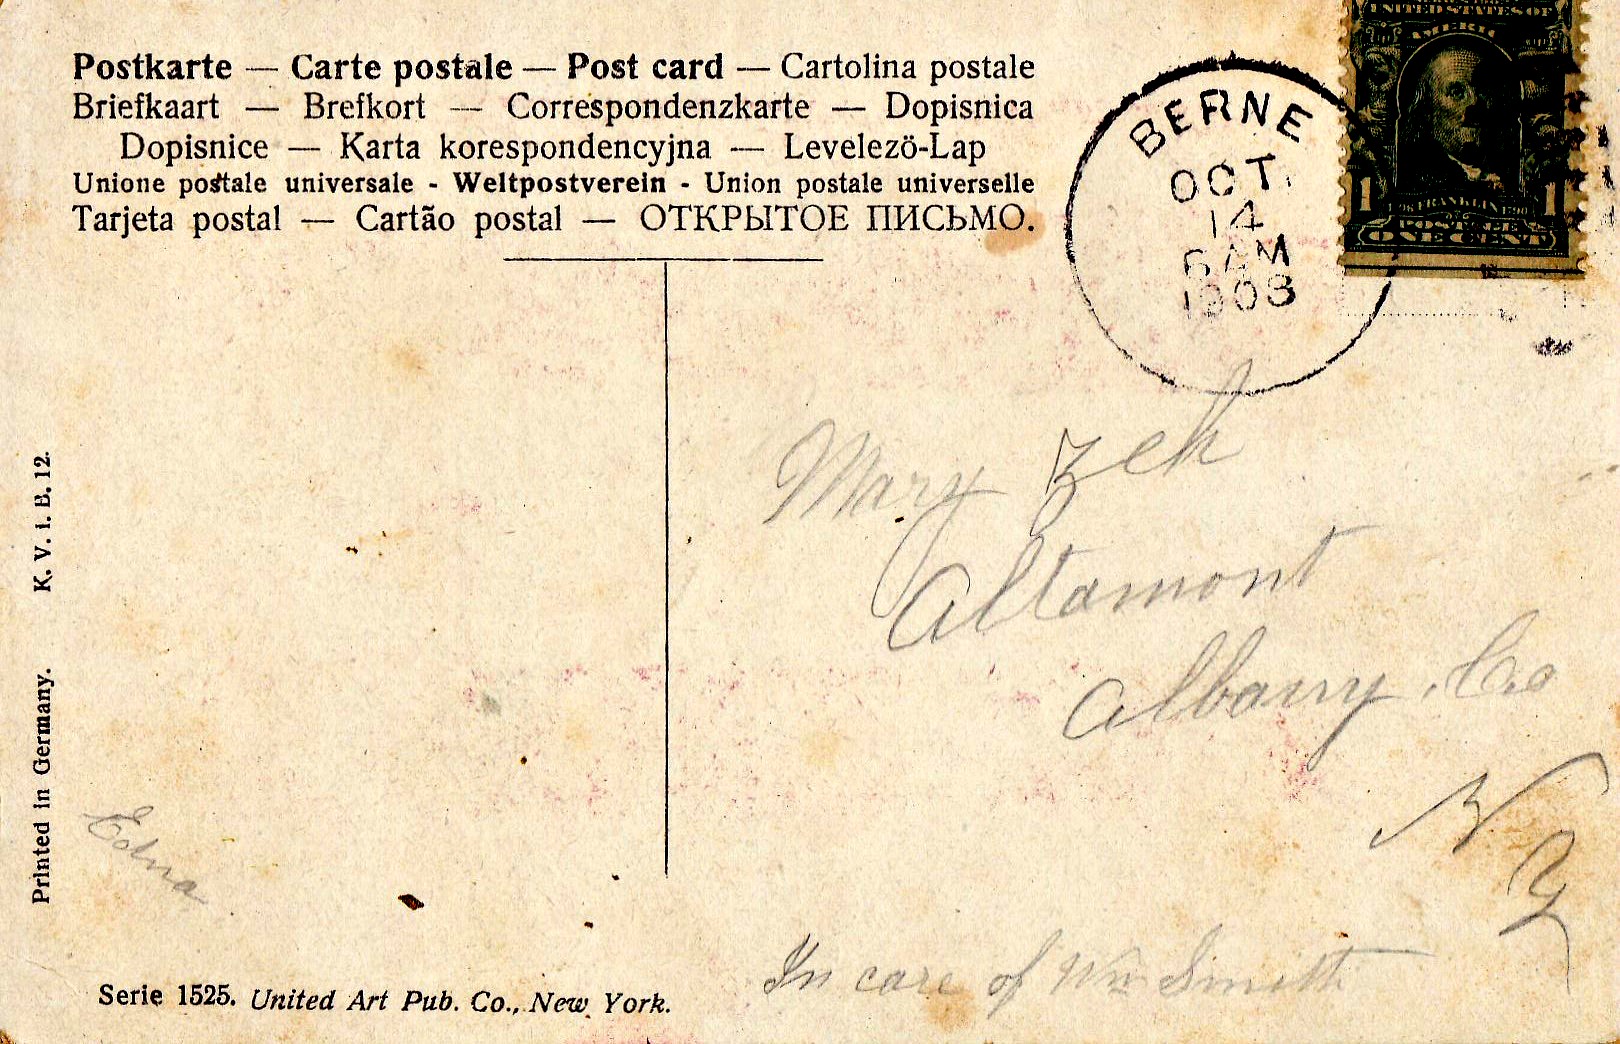 Postkarte — Carte postale — Post card — Cartolina postale
Briefkaart — Brefkort — Correspondenzkarte — Dopisnica
Dopisnice — Karta korespondencyjna — Levelezö-Lap
Unione postale universale - Weltpostverein - Union postale universelle
Tarjeta postal — Cartão postal — ОТКРЫТОЕ ПИСЬМО.
BERNE
OCT
14
6 AM
1908
UNITED STATES OF
AMERIC
1 FRANKLIN 1
POSTAGE
ONE CENT
Mary Zeh
Altamont
Albany Co
N
Y
In care of Wm Smith
Edna
K. V. i. B. 12.
Printed in Germany.
Serie 1525. United Art Pub. Co., New York.